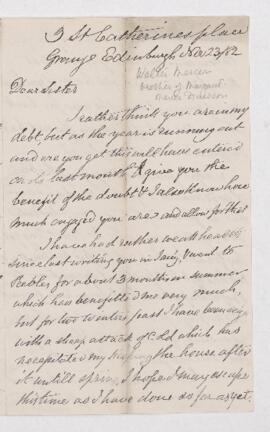 3 St Catherines place
Grange Edinburgh, Nov 23/82
Walter Mercer
brother of Margaret
Mercer
Dear Sister
I rather think you are in my
debt, but as the year is running out
and ere you get this will have entered
on its last month I give you the
benefit of the doubt & I also know how
much engaged you are and allow for that
I have had rather weak health
since last writing you in Jany, I went to
Peebles for about 3 months in summer
which has benefitted me very much,
but for two winters past I have been seized
with a sharp attack of cold which has
necessitated my keeping the house after
it untill spring, I hope I may escape
this time as I have done so far as yet.